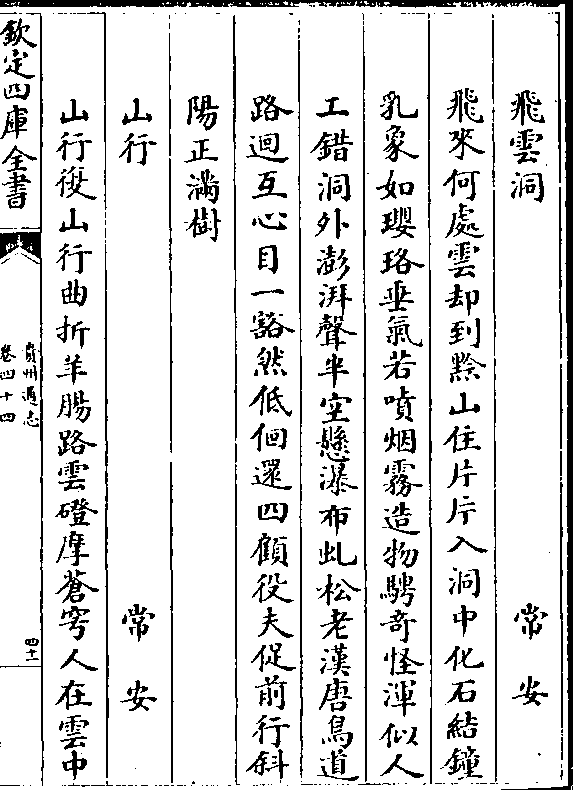 飛雲洞　常安
飛來何處雲却到黔山住片片入洞中化石結鐘
乳象如瓔珞垂氣若噴烟霧造物騁奇怪渾似人
工錯洞外澎湃聲半空懸瀑布虬松老漢唐鳥道
路迴互心目一豁然低佪還四顧役夫促前行斜
陽正滿樹
山行　常安
山行復山行曲折羊腸路雲磴摩蒼穹人在雲中
欽定四庫全書
貴州通志
卷四十四
四十二